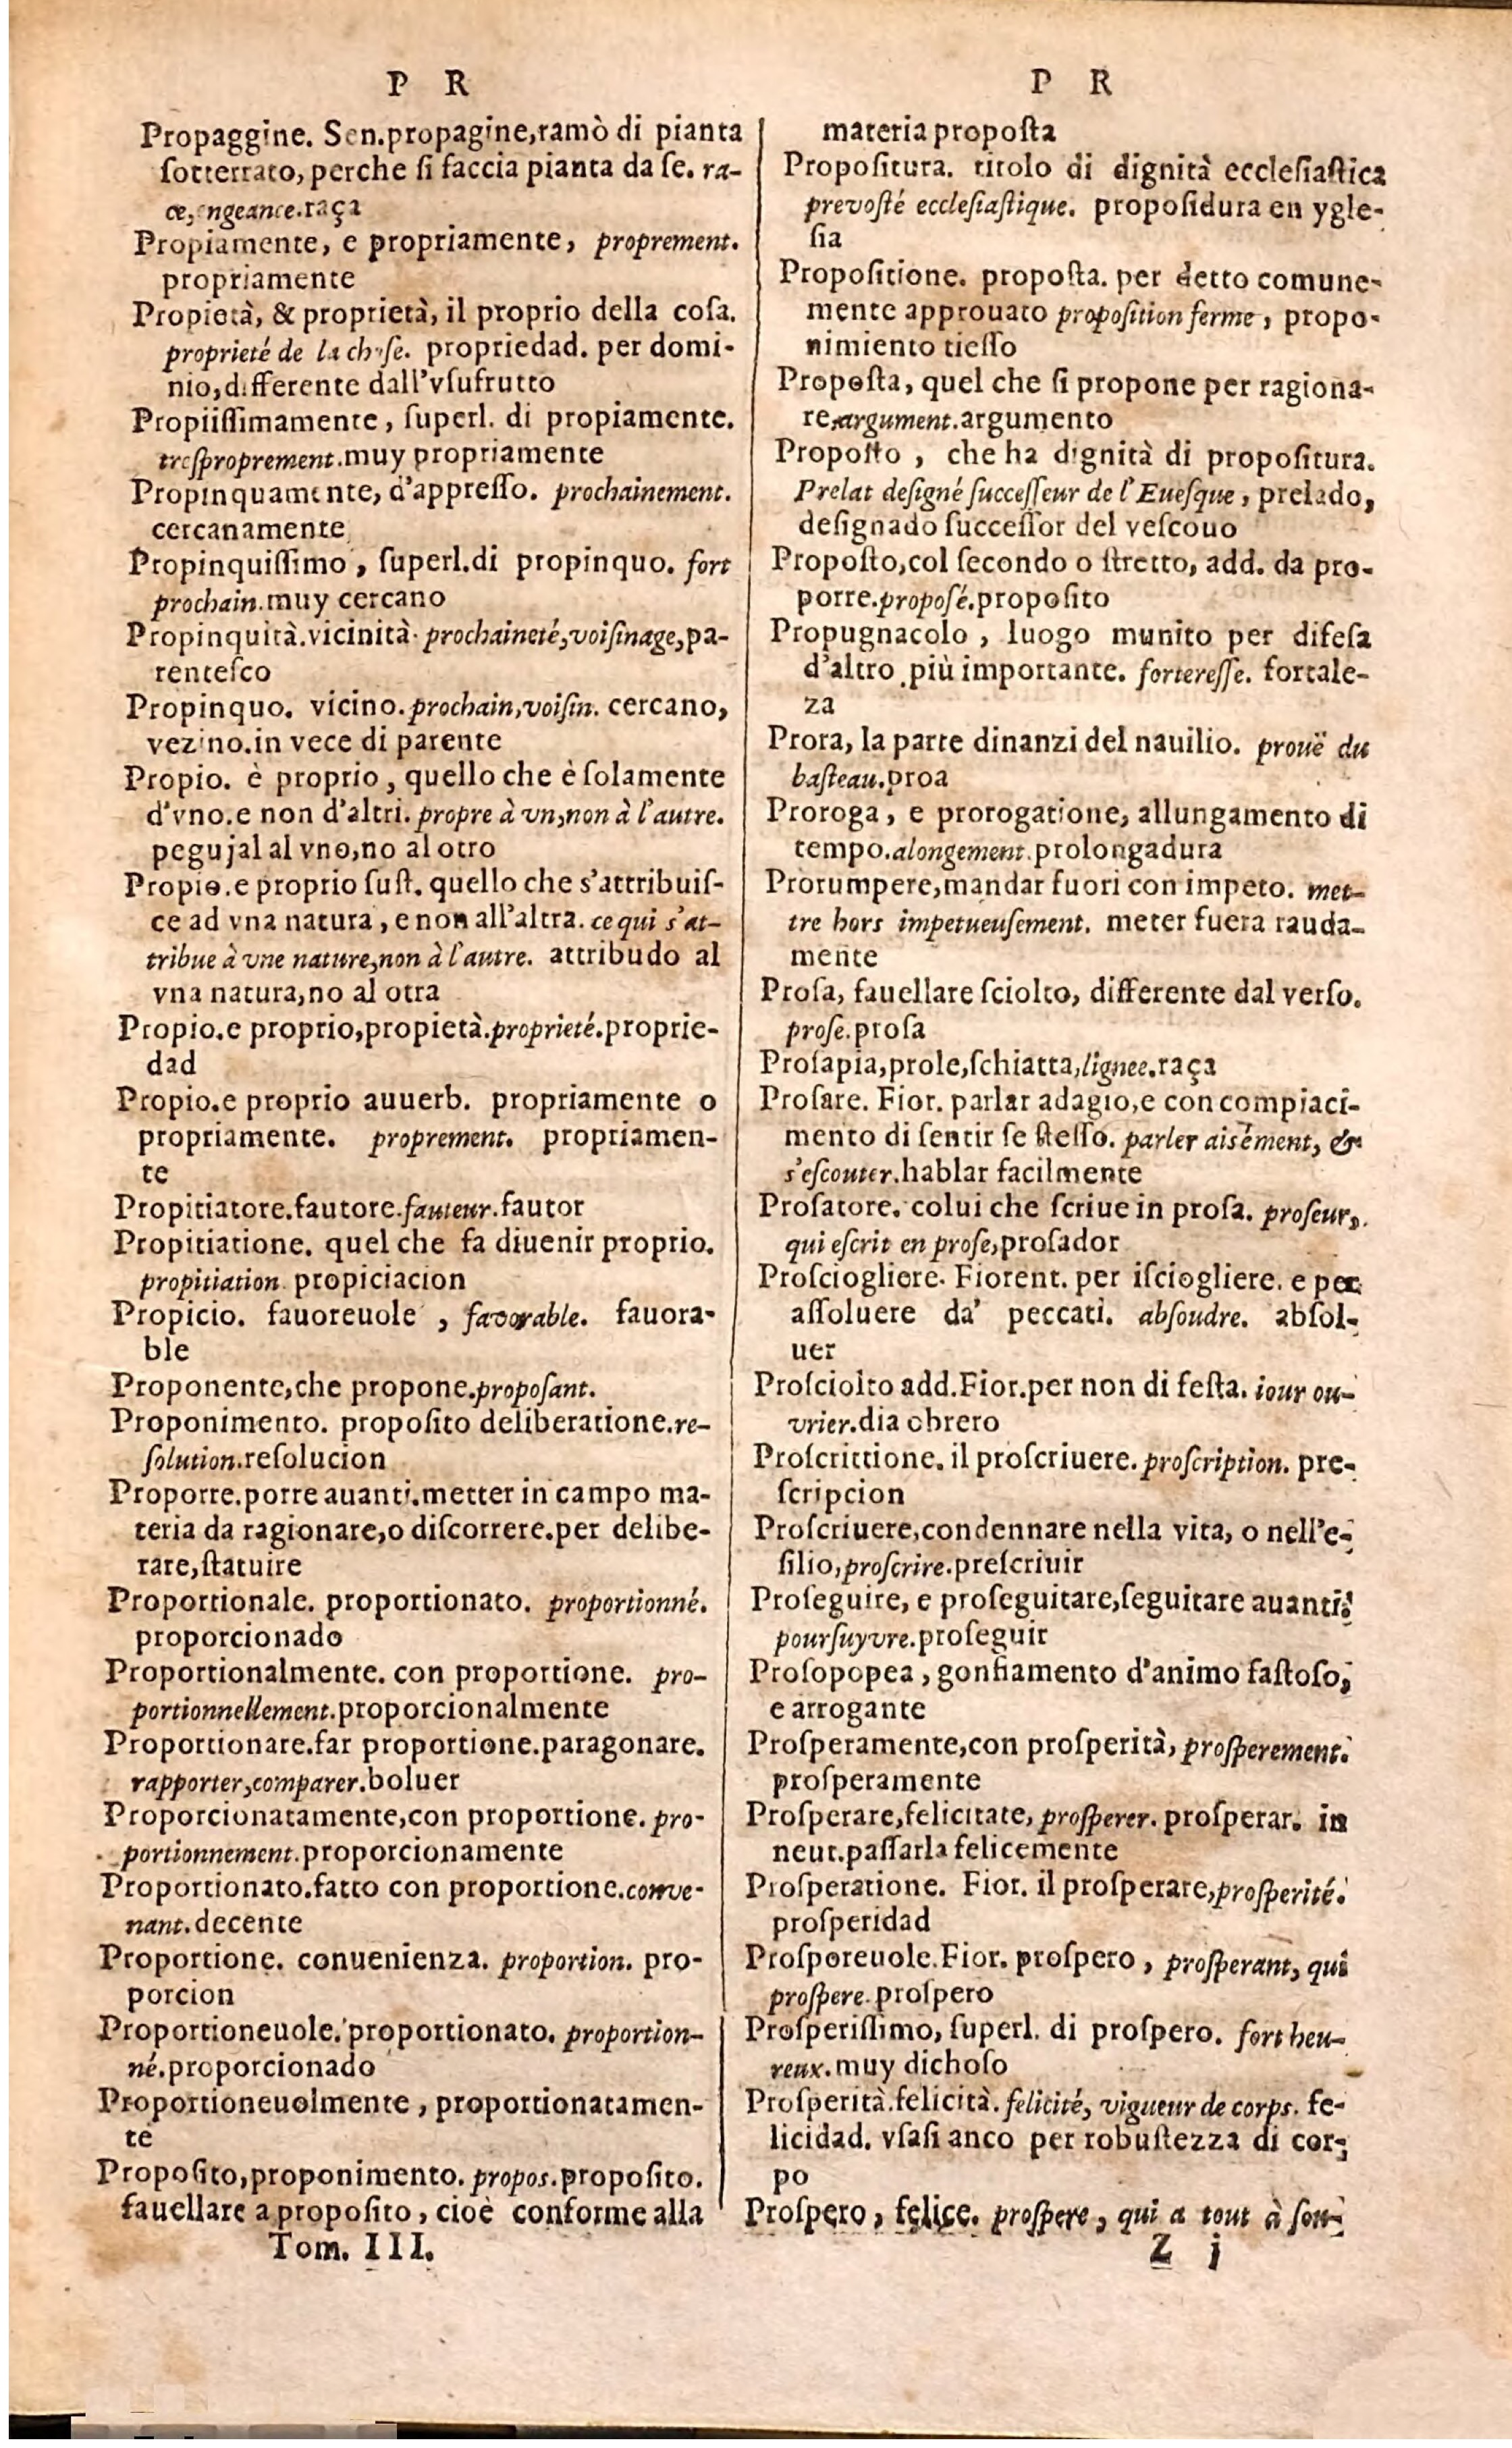 P R
Propaggine. Sen.propagine,ramò di pianta
ſotterrato, perche ſi faccia pianta da ſe. ra-
ce,engeance.raça
Propiamente, e propriamente, proprement.
propriamente
Propietà, & proprietà, il proprio della coſa.
proprieté de la choſe. propriedad. per domi-
nio,differente dall'vſufrutto
Propiiſſimamente, ſuperl. di propiamente.
treſproprement.muy propriamente
Propinquamente, d'appreſſo. prochainement.
cercanamente
Propinquiſſimo, ſuperl.di propinquo. fort
prochain.muy cercano
Propinquità.vicinità. prochaineté,voiſinage,pa-
renteſco
Propinquo. vicino.prochain,voiſin. cercano,
vezino.in vece di parente
Propio. è proprio, quello che è ſolamente
d'vno.e non d'altri. propre à vn,non à l'autre.
pegujal al vno,no al otro
Propio.e proprio ſuſt. quello che s'attribuiſ-
ce ad vna natura, e non all'altra. ce qui s'at-
tribue à vne nature,non à l'autre. attribudo al
vna natura,no al otra
Propio.e proprio,propietà.proprieté.proprie-
dad
Propio.e proprio auuerb. propriamente o
propriamente. proprement. propriamen-
te
Propitiatore.fautore.fauteur.fautor
Propitiatione. quel che fa diuenir proprio.
propitiation propiciacion
Propicio. fauoreuole, favorable. fauora-
ble
Proponente,che propone.propoſant.
Proponimento. propoſito deliberatione.re-
ſolution.reſolucion
Proporre.porre auanti.metter in campo ma-
teria da ragionare,o diſcorrere.per delibe-
rare,ſtatuire
Proportionale. proportionato. proportionné.
proporcionado
Proportionalmente. con proportione. pro-
portionnellement.proporcionalmente
Proportionare.far proportione.paragonare.
rapporter,comparer.boluer
Proporcionatamente,con proportione. pro-
portionnement.proporcionamente
Proportionato.fatto con proportione.conve-
nant.decente
Proportione. conuenienza. proportion. pro-
porcion
Proportioneuole. proportionato. proportion-
né.proporcionado
Proportioneuolmente, proportionatamen-
te
Propoſito,proponimento. propos.propoſito.
fauellare a propoſito, cioè conforme alla
Tom. III.
P R
materia propoſta
Propoſitura. titolo di dignità eccleſiaſtica
prevoſté eccleſiaſtique. propoſidura en ygle-
ſia
Propoſitione. propoſta. per detto comune-
mente approuato propoſition ferme, propo-
nimiento tieſſo
Propoſta, quel che ſi propone per ragiona-
re.argument.argumento
Propoſto, che ha dignità di propoſitura.
Prelat deſigné ſucceſſeur de l'Eueſque, prelado,
deſignado ſucceſſor del veſcouo
Propoſto,col ſecondo o ſtretto, add. da pro-
porre.propoſé.propoſito
Propugnacolo, luogo munito per difeſa
d'altro più importante. fortereſſe. fortale-
za
Prora, la parte dinanzi del nauilio. prouë du
baſteau.proa
Proroga, e prorogatione, allungamento di
tempo.alongement.prolongadura
Prorumpere,mandar fuori con impeto. met-
tre hors impetueuſement. meter fuera rauda-
mente
Proſa, fauellare ſciolto, differente dal verſo.
proſe.proſa
Proſapia,prole,ſchiatta,lignee.raça
Proſare. Fior. parlar adagio,e con compiaci-
mento di ſentir ſe ſteſſo. parler aisément, &
s'eſcouter.hablar facilmente
Proſatore. colui che ſcriue in proſa. proſeur,
qui eſcrit en proſe,proſador
Proſciogliere. Fiorent. per iſciogliere. e per
aſſoluere da' peccati. abſoudre. abſol-
uer
Proſciolto add.Fior.per non di feſta. iour ou-
vrier.dia obrero
Proſcrittione. il proſcriuere. proſcription. pre-
ſcripcion
Proſcriuere,condennare nella vita, o nell'e-
ſilio,proſcrire.preſcriuir
Proſeguire, e proſeguitare,ſeguitare auanti.
pourſuyvre.proſeguir
Proſopopea, gonfiamento d'animo faſtoſo,
e arrogante
Proſperamente,con proſperità, proſperement.
proſperamente
Proſperare,felicitate, proſperer. proſperar. in
neut.paſſarla felicemente
Proſperatione. Fior. il proſperare,proſperité.
proſperidad
Proſporeuole.Fior. proſpero, proſperant, qui
proſpere.proſpero
Proſperiſſimo, ſuperl. di proſpero. fort heu-
reux.muy dichoſo
Proſperità.felicità. felicité, vigueur de corps. fe-
licidad. vſaſi anco per robuſtezza di cor-
po
Proſpero, felice. proſpere, qui a tout à ſou-
Z j